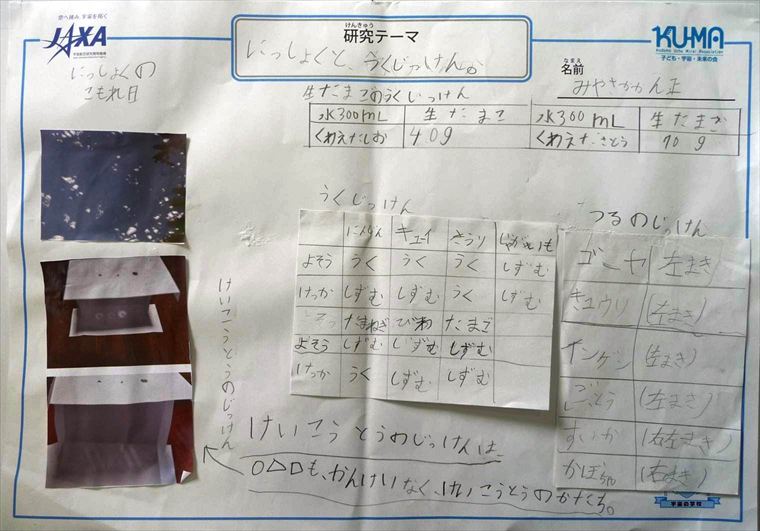 空へ挑み、宇宙を拓く
JAXA
けんきゅう
研究テーマ
にっしょくと、うくじっけん。
KUMA
Kodomo Uchu Mirai Association
子ども・宇宙・未来の会
なまえ
名前
にっしょくの
こもれ日
生たまごのうくじっけん
水300mL 生たまご
くわえたしお 40g
水300mL 生たまご
くわえたさとう 70g
うくじっけん
にんじん キューイ きゅうり じゃがいも
よそう うく うく うく しずむ
けっか しずむ しずむ うく しずむ
たまねぎ びわ たまご
よそう しずむ しずむ しずむ
けっか うく しずむ しずむ
つるのじっけん
ゴーヤ 左まき
きュウリ (左まき)
インゲン (左まき)
(左まき)
すいか (右左まき)
かぼちゃ (右まき)
けいこうとうのじっけん
けいこうとうのじっけんは
○△□も、かんけいなく、けいこうとうのかたち。
宇宙の学校